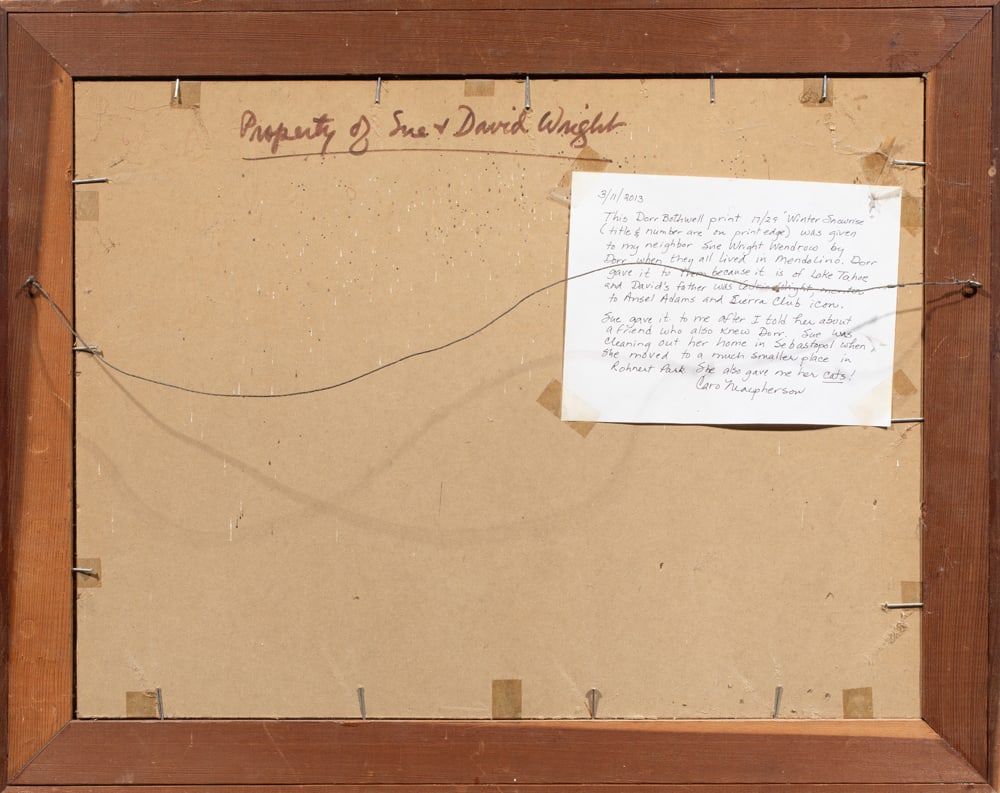 Property of Sue + David Wright
3/11/2013
This Dorr Bothwell print 17/25 "Winter Snowrise
(title & number are on print edge) was given
to my neighbor Sue Wright Wendrow by
Dorr when they all lived in Mendocino. Dorr
gave it to them because it is of Lake Tahoe
and David's father was Wright, mentor
to Ansel Adams and Sierra Club icon.
Sue gave it to me after I told her about
a friend who also knew Dorr. Sue was
cleaning out her home in Sebastopol when
she moved to a much smaller place in
Rohnert Park. She also gave me her cats!
Caro Macpherson